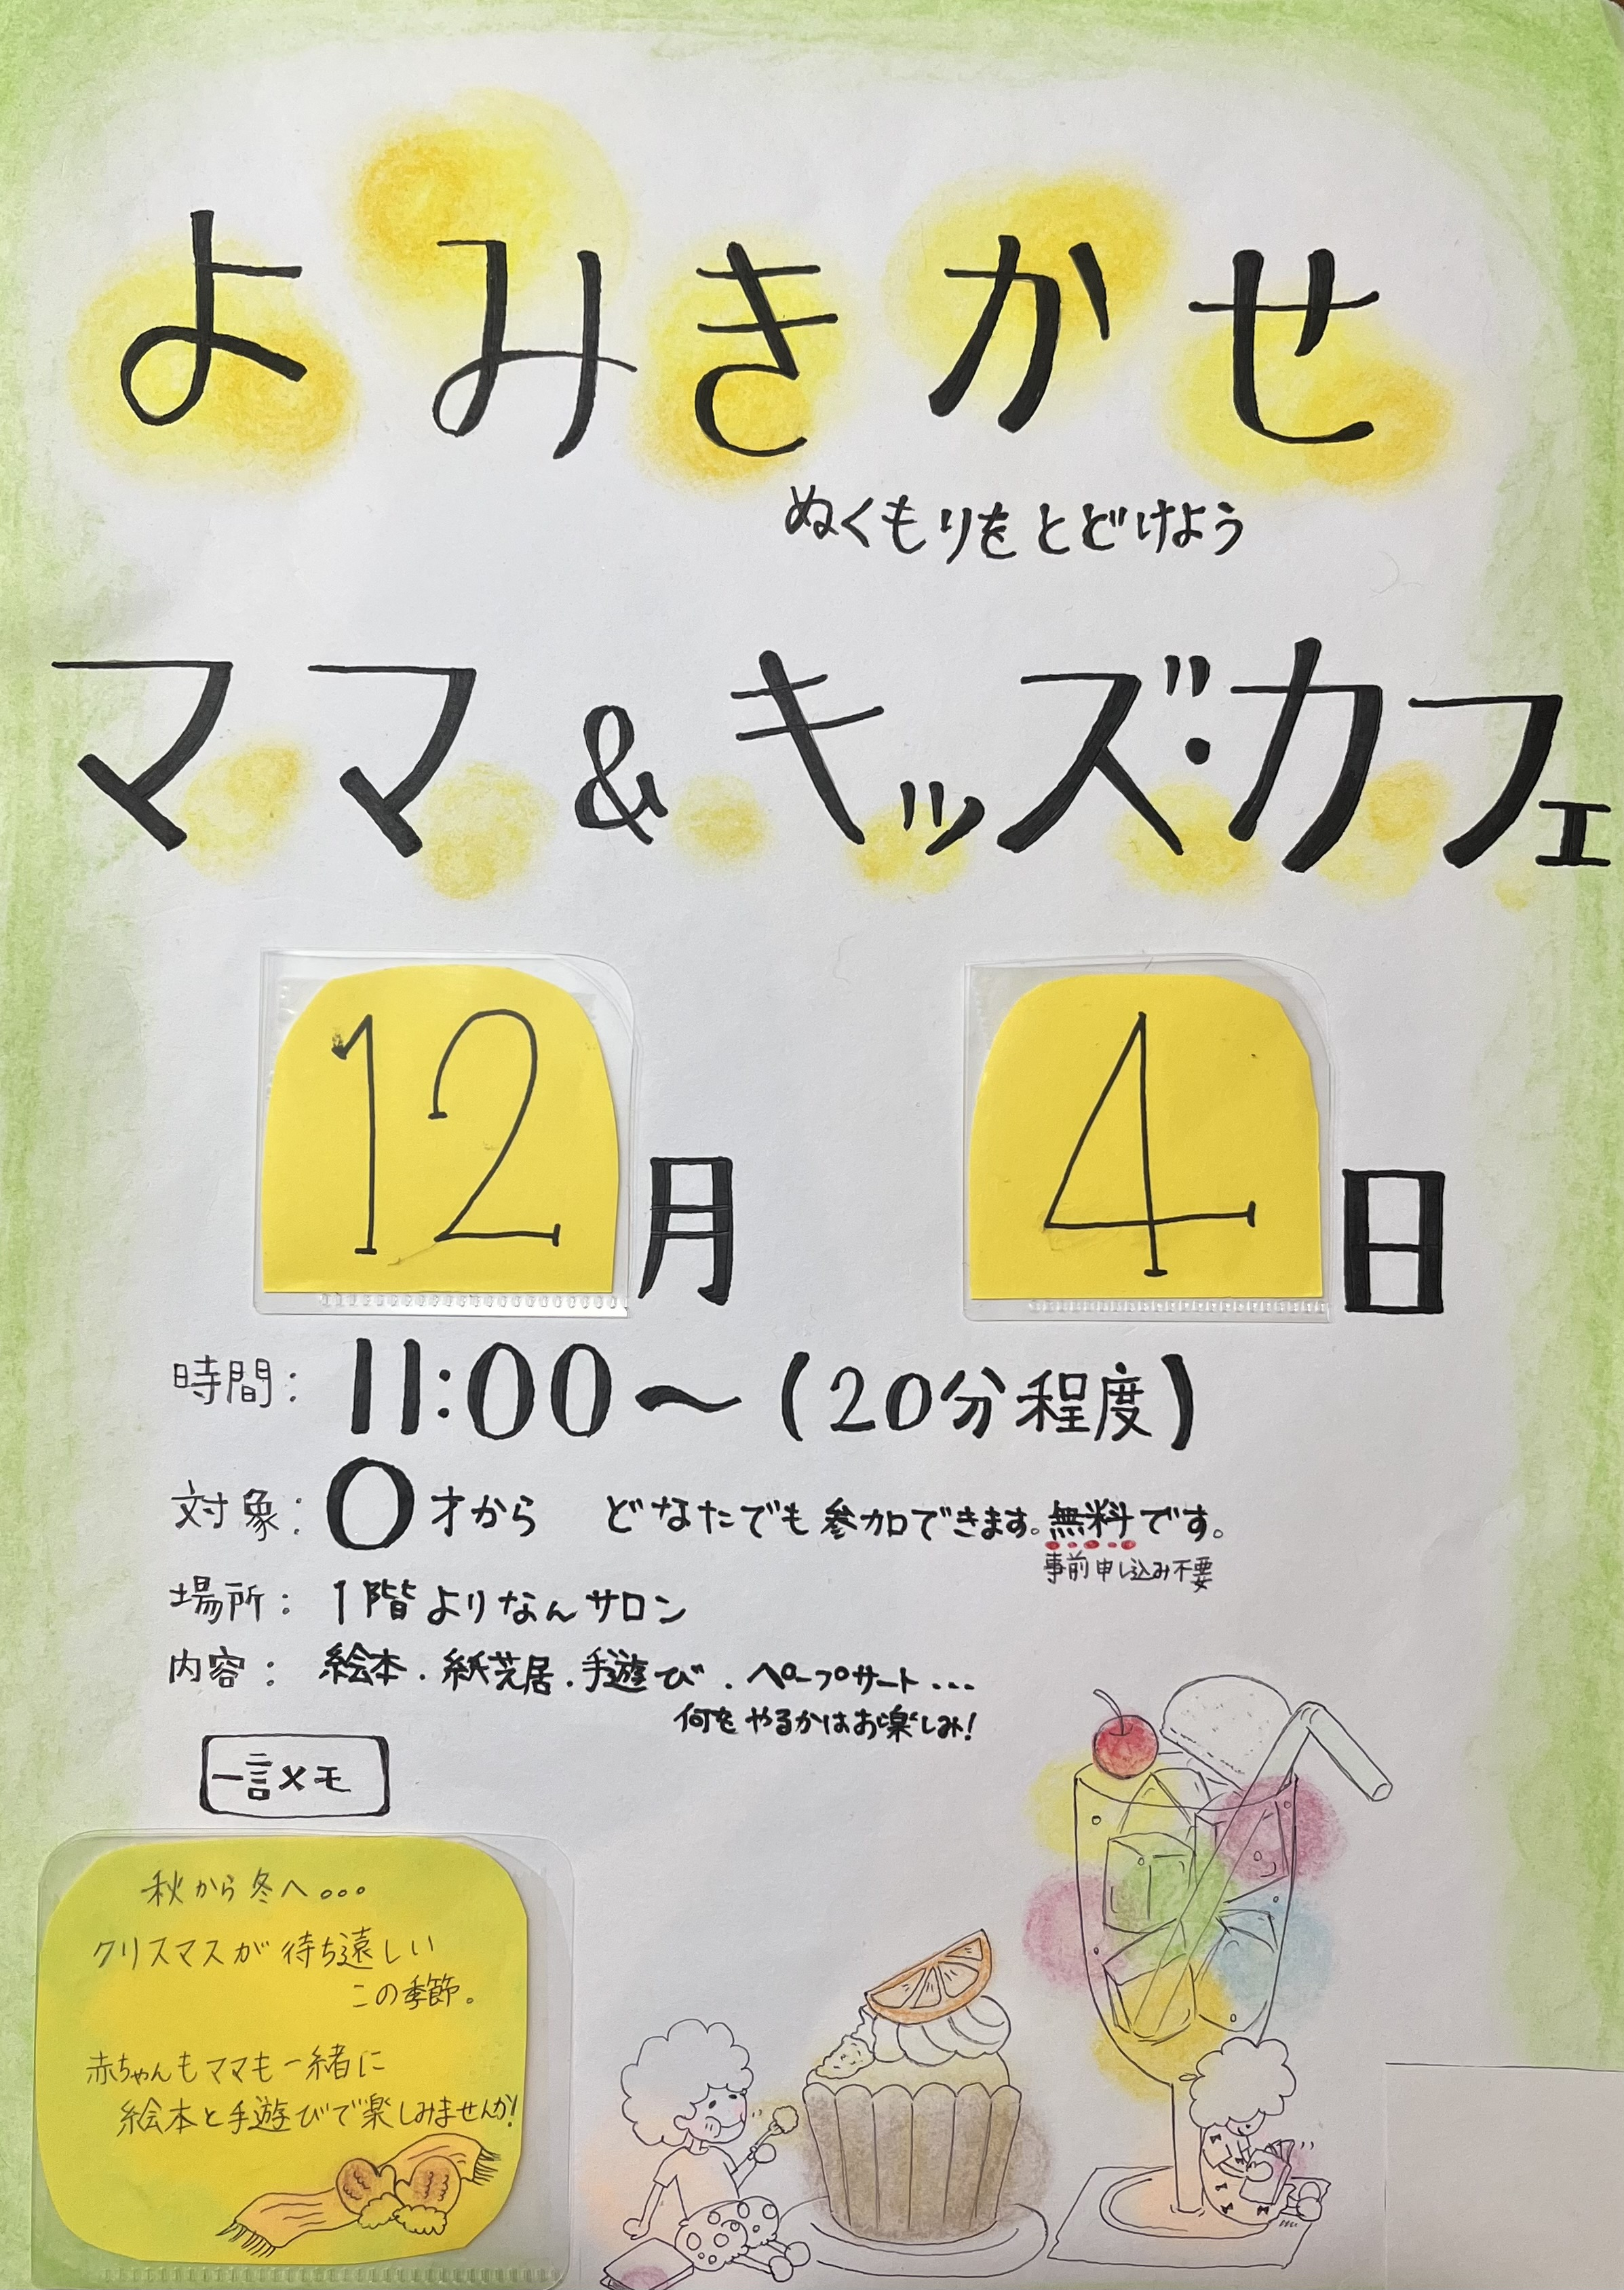 よみきかせ
ぬくもりをとどけよう
ママ&キッズ・カフェ
12月 4日
時間: 11:00～(20分程度)
対象: 0才から どなたでも参加できます。無料です。
事前申し込み不要
場所: 1階よりなんサロン
内容: 絵本.紙芝居.手遊び.ペープサート...
何をやるかはお楽しみ!
一言メモ
秋から冬へ。。。
クリスマスが待ち遠しい
この季節。
赤ちゃんもママも一緒に
絵本と手遊びで楽しみませんか!